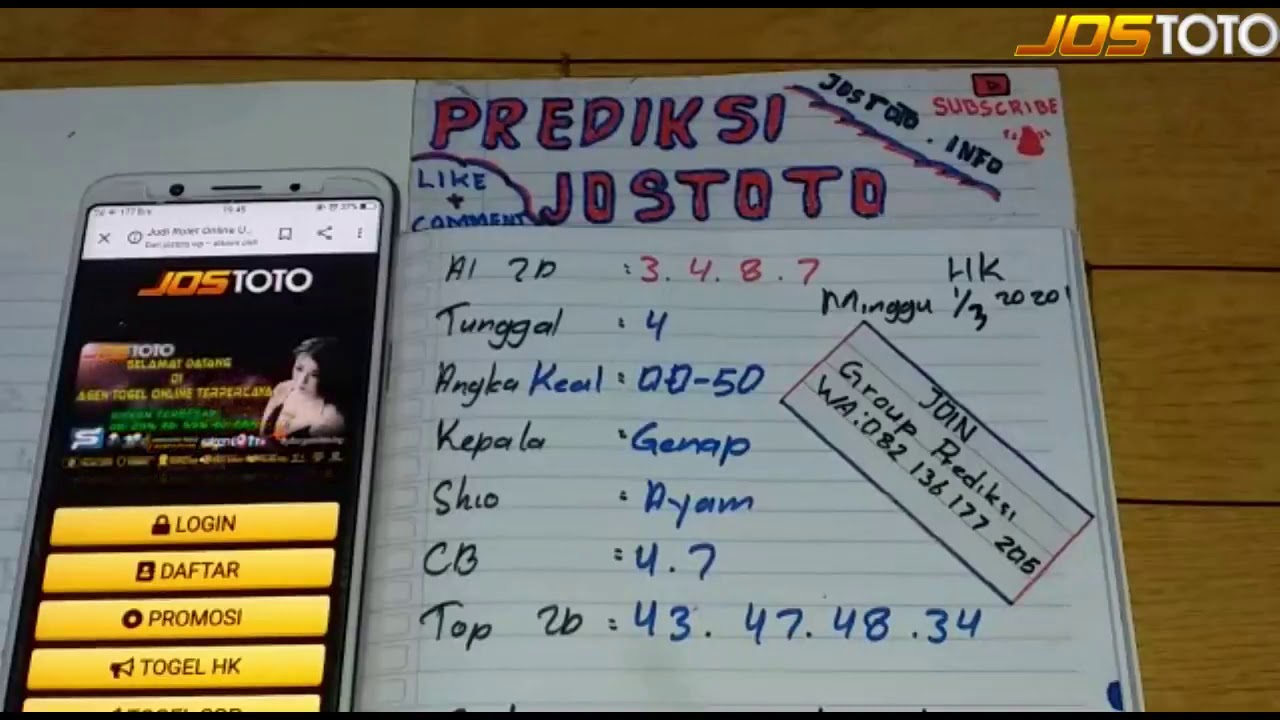 JOSTOTO
PREDIKSI
JOSTOTO
JOSTOTO . INFO
SUBSCRIBE
LIKE
+
COMMENT
AI 2D : 3. 4. 8. 7
HK
Minggu 1/3 2020
Tunggal : 4
Angka Keal : 00-50
Kepala : Genap
Shio : Ayam
CB : 4. 7
Top 2D : 43. 47. 48. 34
JOIN
Group Prediksi
WA: 082 136 177 2015
19.45
Judi Rolet Online U...
JOSTOTO
TOTO
SELAMAT DATANG
DI
AGEN TOGEL ONLINE TERPERCAYA
LOGIN
DAFTAR
PROMOSI
TOGEL HK